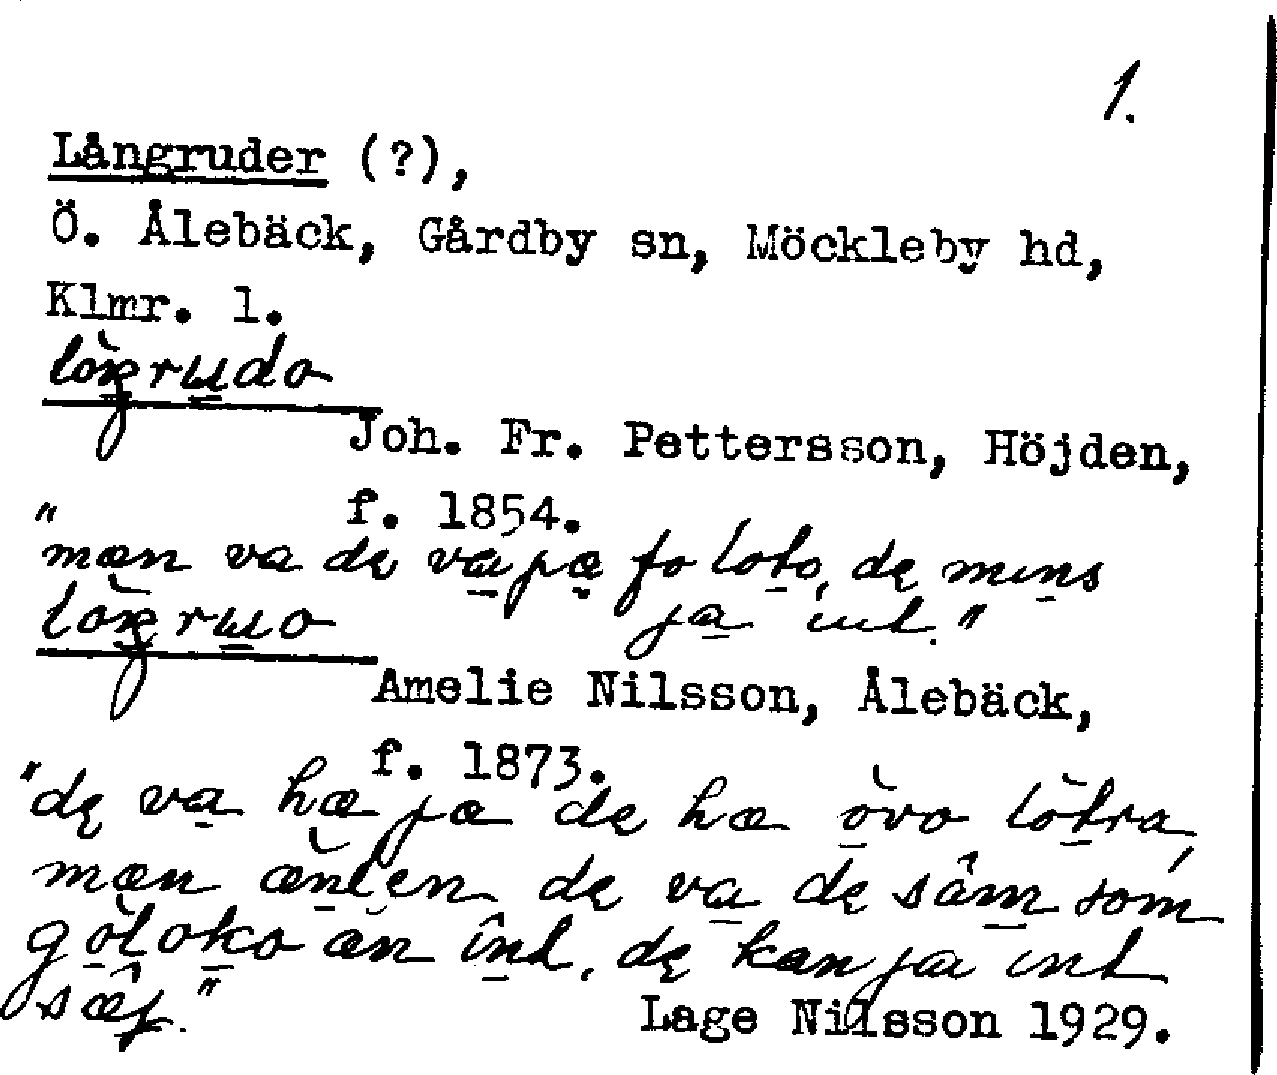 1.
Långruder (?),
Ö. Ålebäck, Gårdby sn, Möckleby hd,
Klmr. l.
lòŋrudo
Joh. Fr. Pettersson, Höjden,
f. 1854.
"mæn va dę va på fo loto, dę mins
ja int."
lòŋruo
Amelie Nilsson, Ålebäck,
f. 1873.
"dę va hæ pæ dę hæ òvo lòtra,
mæn æ̀nlen dę va dę sâm som
gòloko æn înt, dę kan ja int
sæj."
Lage Nilsson 1929.